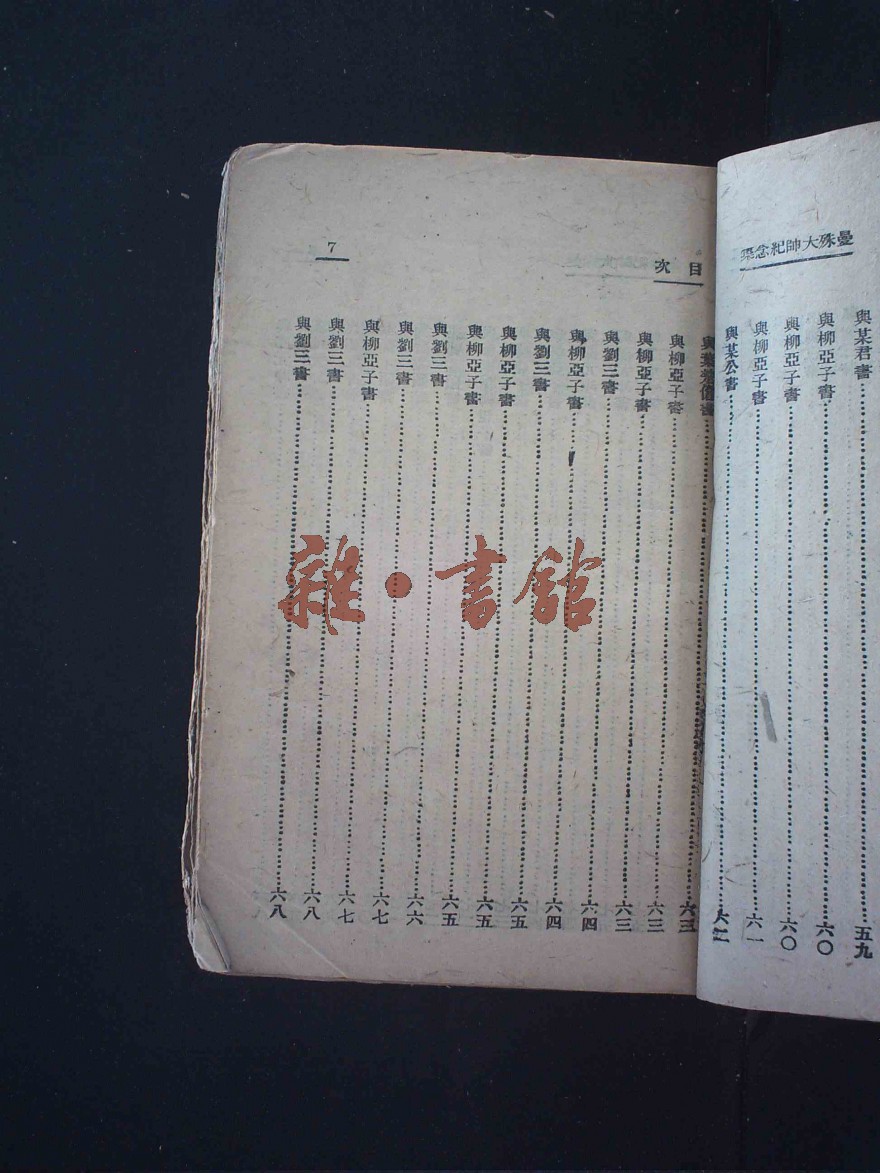 曼殊大師紀念集
與某君書……五九
與柳亞子書……六〇
與柳亞子書……六〇
與柳亞子書……六一
與某公書……六二
目次
7
與葉楚傖書……六三
與柳亞子書……六三
與柳亞子書……六三
與劉三書……六四
與柳亞子書……六四
與劉三書……六五
與柳亞子書……六五
與柳亞子書……六五
與劉三書……六六
與劉三書……六七
與柳亞子書……六七
與劉三書……六八
與劉三書……六八
雜·書館